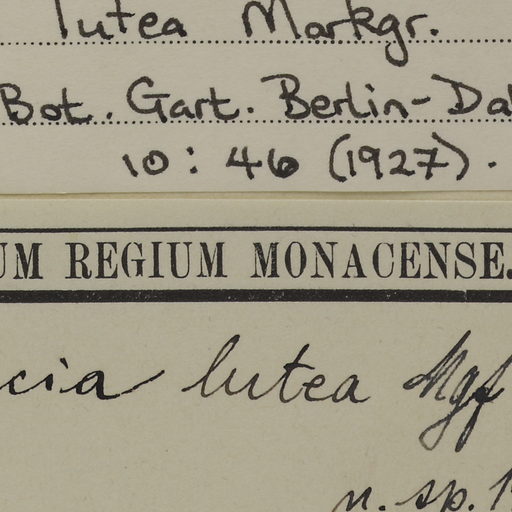 lutea Markgr.
Bot. Gart. Berlin-Dal
10: 46 (1927).
UM REGIUM MONACENSE.
cia lutea Mgf
n. sp. 1